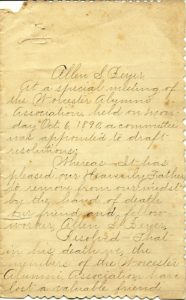 Allen S. Beyer
At a special meeting of
the Worcester Alumni
Association, held on Mon-
day Oct. 6, 1890, a committee
was appointed to draft
resolutions;
Whereas It has
pleased our Heavenly Father
to remove from our midst
by the hand of death
our friend and fellow
worker, Allen S. Beyer,
Resolved That
in his death we, the
members of the Worcester
Alumni Association, have
lost a valuable friend